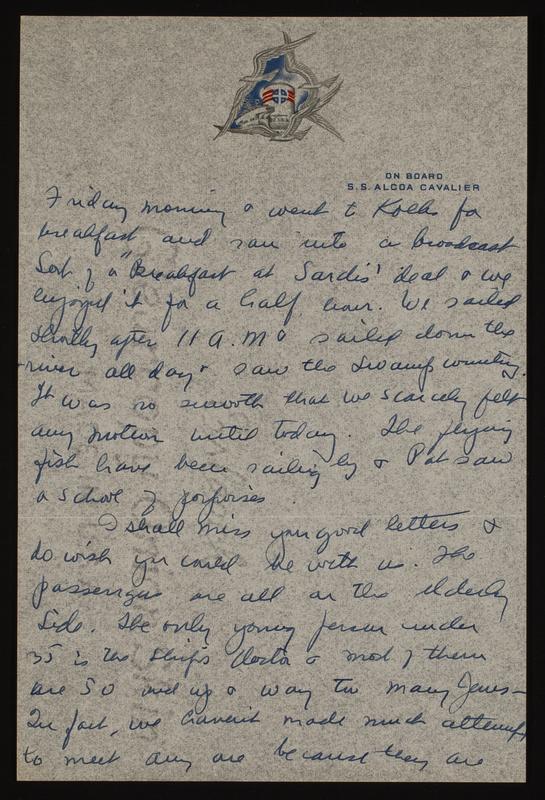 ON BOARD
S.S. ALCOA CAVALIER
Friday morning & went to Kolbs for
breakfast and ran into a broadcast
Sort of a "Breakfast at Sardis' deal & we
enjoyed it for a half hour. We sailed
shortly after 11 A.M & sailed down the
river all day & saw the swamp country.
It was so smooth that we scarcely felt
any motion until today. The flying
fish have been sailing by & Pat saw
a school of porpoises
I shall miss your good letters &
do wish you could be with us. The
passengers are all on the elderly
side. The only young person under
35 is the ship's doctor & most of them
are 50 and up & way too many Jews -
In fact, we haven't made much attempt
to meet any one because they are